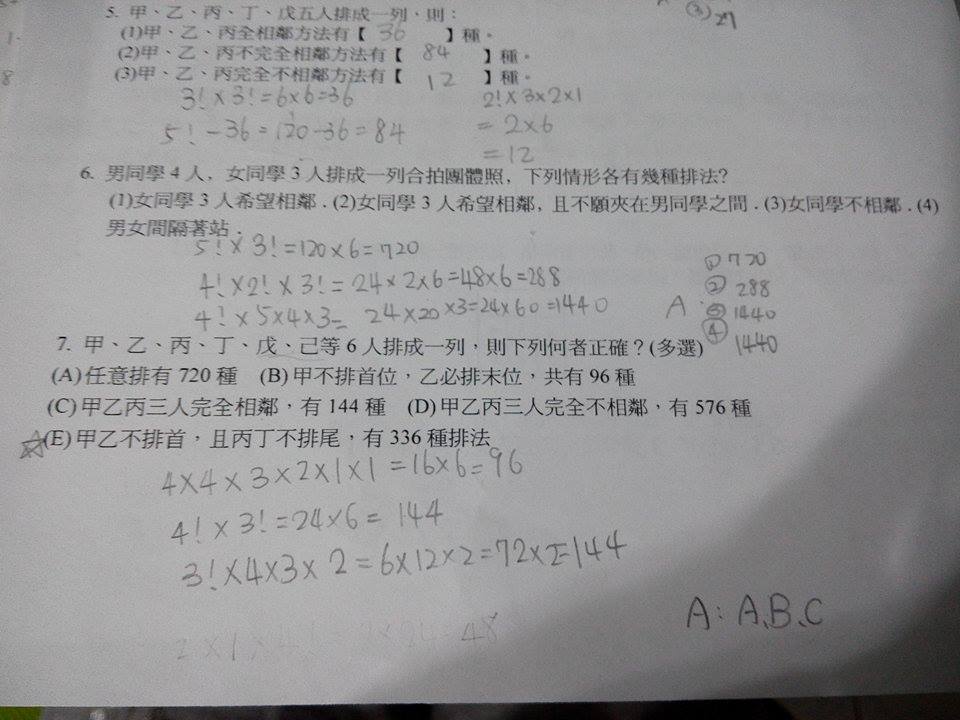 ③ 27
5. 甲、乙、丙、丁、戊五人排成一列，則：
(1)甲、乙、丙全相鄰方法有【 36 】種。
(2)甲、乙、丙不完全相鄰方法有【 84 】種。
(3)甲、乙、丙完全不相鄰方法有【 12 】種。
3! × 3! = 6×6=36
5! - 36 = 120 - 36 = 84
2! × 3 × 2 × 1
= 2 × 6
= 12
6. 男同學 4 人，女同學 3 人排成一列合拍團體照，下列情形各有幾種排法?
(1)女同學 3 人希望相鄰．(2)女同學 3 人希望相鄰，且不願夾在男同學之間．(3)女同學不相鄰．(4)
男女間隔著站．
5! × 3! = 120 × 6 = 720
4! × 2! × 3! = 24 × 2 × 6 = 48×6 = 288
4! × 5 × 4 × 3 = 24 × 20 × 3 = 24 × 60 = 1440
A：
① 720
② 288
③ 1440
④ 1440
7. 甲、乙、丙、丁、戊、己等 6 人排成一列，則下列何者正確？(多選)
(A)任意排有 720 種 (B)甲不排首位，乙必排末位，共有 96 種
(C)甲乙丙三人完全相鄰，有 144 種 (D)甲乙丙三人完全不相鄰，有 576 種
(E)甲乙不排首，且丙丁不排尾，有 336 種排法
4×4×3×2×1×1 = 16×6 = 96
4! × 3! = 24×6 = 144
3! × 4×3× 2 = 6×12×2 = 72×2=144
A：A、B、C
48